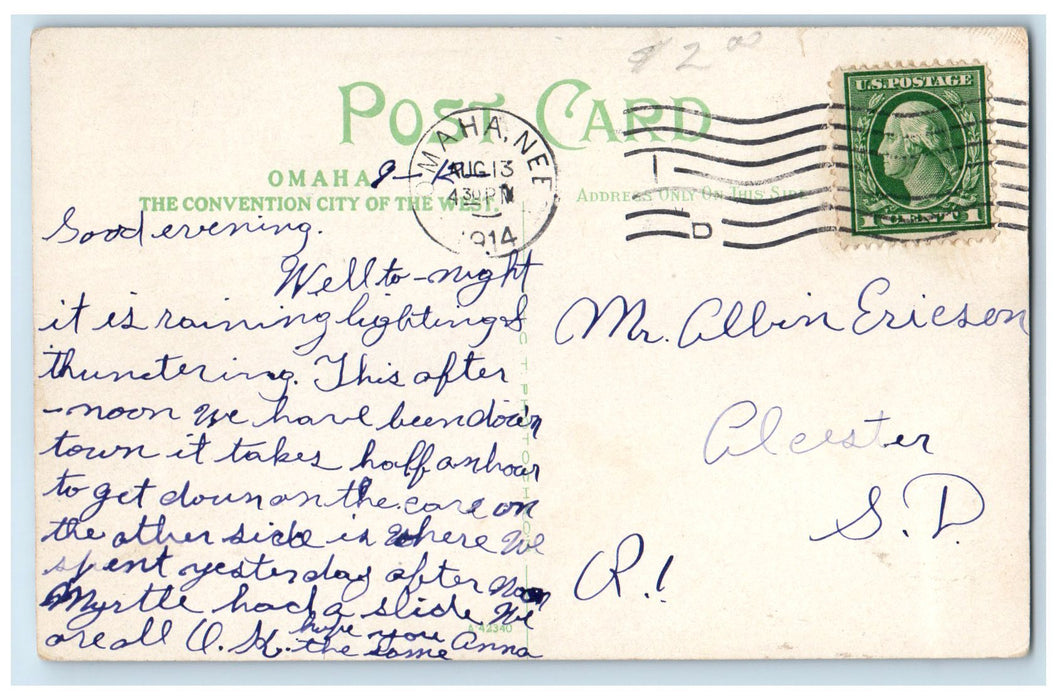 $2.00
POST CARD
OMAHA, NEB
AUG 13
4 30 PM
1914
D
U.S. POSTAGE
1 CENT 1
OMAHA
THE CONVENTION CITY OF THE WEST.
ADDRESS ONLY ON THIS SIDE
Good evening.
Well to-night
it is raining lighting &
thundering. This after
-noon we have been down
town it takes half an hour
to get down on the cars on
the other side is where we
spent yesterday after noon
Myrtle had a slide We
are all O.K. hope you
the same Anna
Mr. Albin Ericson
Alcester
S. D.
R.!
A-42340